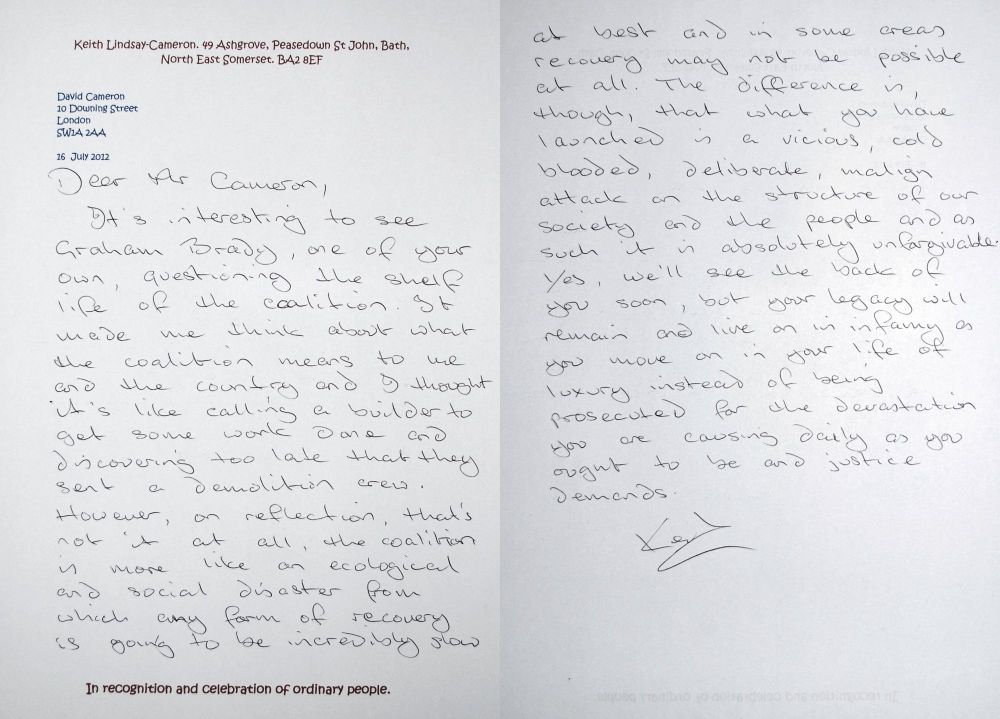 Keith Lindsay-Cameron. 49 Ashgrove, Peasedown St John, Bath,
North East Somerset. BA2 8EF
David Cameron
10 Downing Street
London
SW1A 2AA
16 July 2012
Dear Mr Cameron,
It's interesting to see
Graham Brady, one of your
own, questioning the shelf
life of the coalition. It
made me think about what
the coalition means to me
and the country and I thought
it's like calling a builder to
get some work done and
discovering too late that they
sent a demolition crew.
However, on reflection, that's
not it at all, the coalition
is more like an ecological
and social disaster from
which any form of recovery
is going to be incredibly slow
In recognition and celebration of ordinary people.
at best and in some areas
recovery may not be possible
at all. The difference is,
though, that what you have
launched is a vicious, cold
blooded, deliberate, malign
attack on the structure of our
society and the people and as
such it is absolutely unforgivable.
Yes, we'll see the back of
you soon, but your legacy will
remain and live on in infamy as
you move on in your life of
luxury instead of being
prosecuted for the devastation
you are causing daily as you
ought to be and justice
demands.